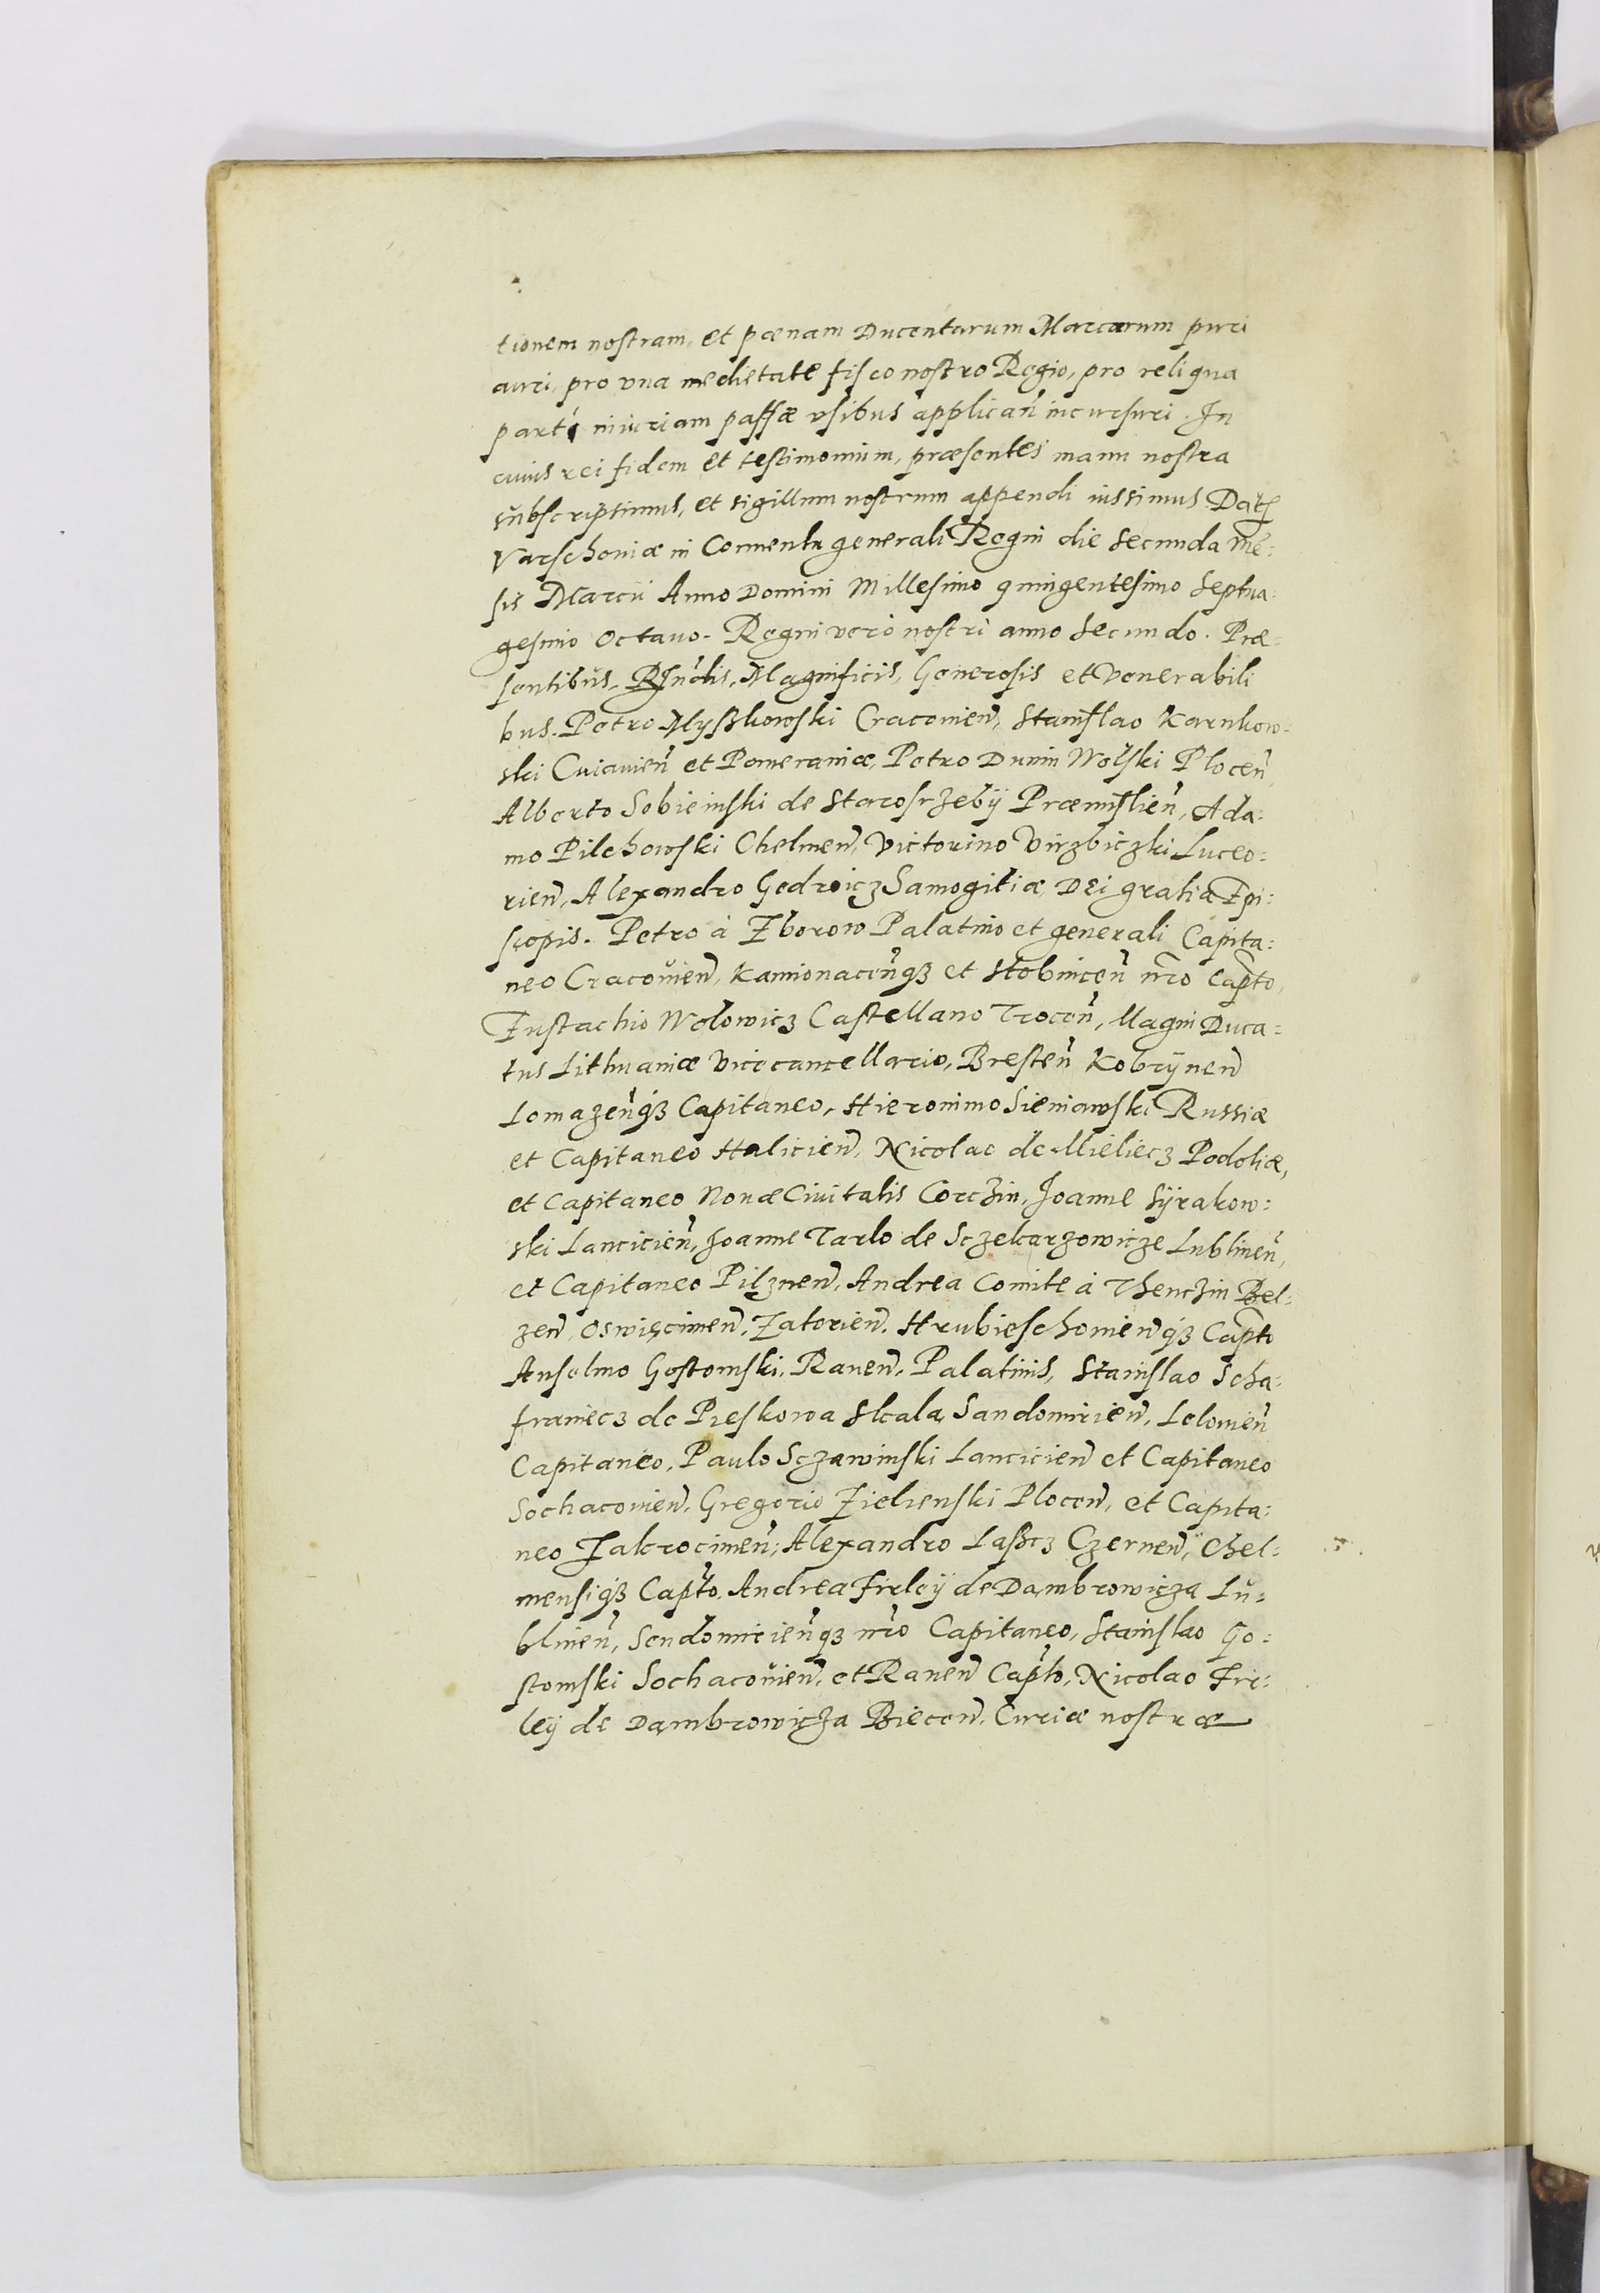 tionem nostram, et pœnam Ducentarum Marcarum puri
auri, pro vna medietate fisco nostro Regio, pro reliqua
parti iniuriam passæ vsibus applicañ incursuri. In
cuius rei fidem et testimonium, præsentes manu nostra
subscripsimus, et sigillum nostrum appendi iussimus. Dat
Varschoviæ in Conuentu generali Regni die secunda mē:
sis Marcii Anno Domini Millesimo quingentesimo Septua:
gesimo Octauo. Regni vero nostri anno Secundo. Præ:
sentibus, Rñdis, Magnificis, Generosis et Venerabili
bus. Petro Myßkowski Cracouien, Stanislao Karnkow:
ski Cuiauien et Pomeraniæ, Petro Dunin Wolski Plocen,
Alberto Sobieinski de Starosrzebÿ Præmislien, Ada:
mo Pilchowski Chelmen, Victorino Virzbiczki Luceo:
rien, Alexandro Gedroicz Samogitiæ Dei gratia Epi:
scopis. Petro à Zborow Palatino et generali Capita:
neo Cracouien, Kamionacenq3 et Stobnicen nro Capto,
Eustachio Wolowicz Castellano Trocen, Magni Duca:
tus Lithuaniæ Vicecancellario, Bresten Kobrÿnen
Lomazenq3 Capitaneo, Hieronimo Sieniawski Russiæ
et Capitaneo Halicien, Nicolao de Mieliecz Podoliæ,
et Capitaneo Nouæ Ciuitatis Corczin, Joanne Sÿrakow:
ski Lancicien, Joanne Tarlo de Sczekarzowicze Lublinen,
et Capitaneo Pilznen, Andrea Comite à Thenczin Bel:
zen, Oswięcimen, Zatorien, Hrubieschouienq3 Capto
Anselmo Gostomski, Rauen, Palatinis, Stanislao Scha:
franiecz de Pieskowa Skala, Sandomirien, Lelouien
Capitaneo, Paulo Sczawinski Lancicien et Capitaneo
Sochacouien, Gregorio Zielienski Plocen, et Capita:
neo Zakrocimen, Alexandro Laßcz Czernen, Chel:
mensiq3 Capto. Andrea Firleÿ de Dambrowicza Lu:
blinen, Sendomirienq3 nro Capitaneo, Stanislao Go:
stomski Sochacouien, et Rauen Capto, Nicolao Fir:
leÿ de Dambrowicza Biecen, Curiæ nostræ